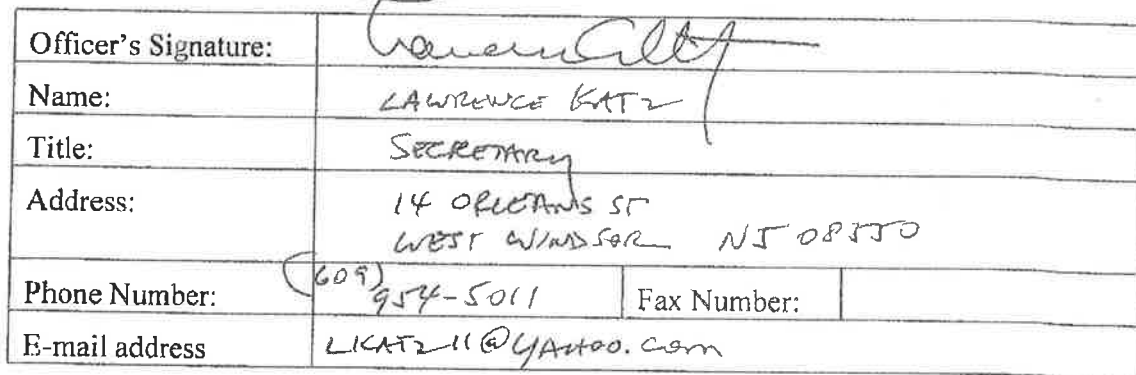 Officer's Signature:
Name: LAWRENCE KATZ
Title: SECRETARY
Address: 14 ORLEANS ST
WEST WINDSOR NJ 08550
Phone Number: (609) 954-5011 Fax Number:
E-mail address LKATZ11@YAHOO.com